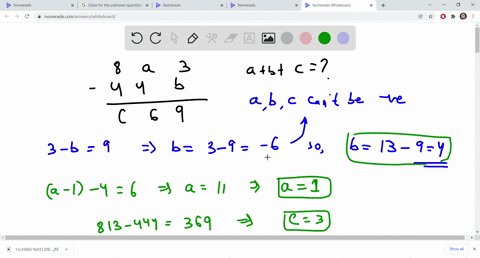 Numerade
Solve for the unknown quantities
Numerade
Numerade
Numerade Whiteboard
numerade.com/answers/whiteboard/
8 a 3 a+b+c=?
- 4 4 b
c 6 9 a,b,c can't be -ve
3-b=9 ⇒ b= 3-9= -6 so, b= 13-9=4
(a-1)-4=6 ⇒ a= 11 ⇒ a=1
813-444= 369 ⇒ c=3
Show all